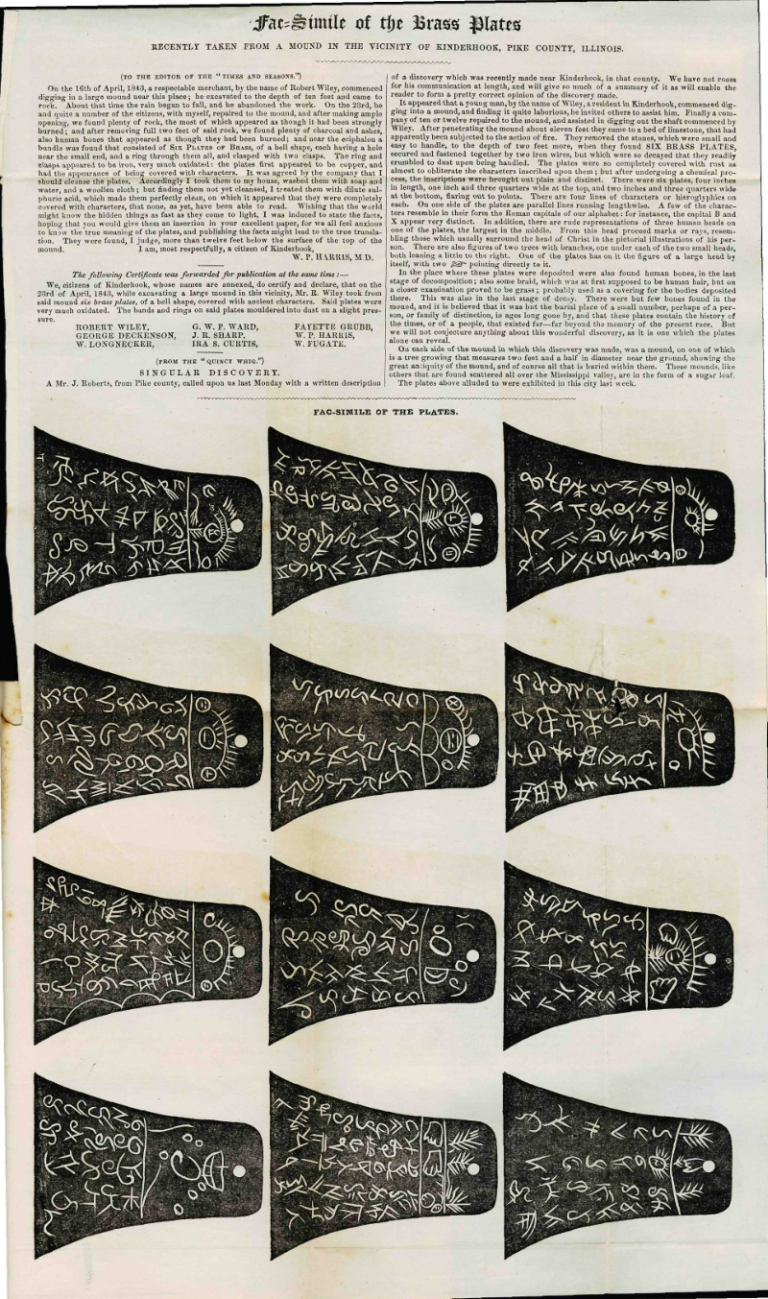 Fac-Simile of the Brass Plates
RECENTLY TAKEN FROM A MOUND IN THE VICINITY OF KINDERHOOK, PIKE COUNTY, ILLINOIS.
(TO THE EDITOR OF THE "TIMES AND SEASONS.")
On the 16th of April, 1843, a respectable merchant, by the name of Robert Wiley, commenced
digging in a large mound near this place; he excavated to the depth of ten feet and came to
rock. About that time the rain began to fall, and he abandoned the work. On the 23rd, he
and quite a number of the citizens, with myself, repaired to the mound, and after making ample
opening, we found plenty of rock, the most of which appeared as though it had been strongly
burned; and after removing full two feet of said rock, we found plenty of charcoal and ashes,
also human bones that appeared as though they had been burned; and near the eciphalon a
bundle was found that consisted of SIX PLATES OF BRASS, of a bell shape, each having a hole
near the small end, and a ring through them all, and clasped with two clasps. The ring and
clasps appeared to be iron, very much oxidated: the plates first appeared to be copper, and
had the appearance of being covered with characters. It was agreed by the company that I
should cleanse the plates. Accordingly I took them to my house, washed them with soap and
water, and a woollen cloth; but finding them not yet cleansed, I treated them with dilute sul-
phuric acid, which made them perfectly clean, on which it appeared that they were completely
covered with characters, that none, as yet, have been able to read. Wishing that the world
might know the hidden things as fast as they come to light, I was induced to state the facts,
hoping that you would give them an insertion in your excellent paper, for we all feel anxious
to know the true meaning of the plates, and publishing the facts might lead to the true transla-
tion. They were found, I judge, more than twelve feet below the surface of the top of the
mound. I am, most respectfully, a citizen of Kinderhook,
W. P. HARRIS, M.D.
The following Certificate was forwarded for publication at the same time:—
We, citizens of Kinderhook, whose names are annexed, do certify and declare, that on the
23rd of April, 1843, while excavating a large mound in this vicinity, Mr. R. Wiley took from
said mound six brass plates, of a bell shape, covered with ancient characters. Said plates were
very much oxidated. The bands and rings on said plates mouldered into dust on a slight pres-
sure.
ROBERT WILEY, G. W. F. WARD, FAYETTE GRUBB,
GEORGE DECKENSON, J. R. SHARP, W. P. HARRIS,
W. LONGNECKER, IRA S. CURTIS, W. FUGATE.
(FROM THE "QUINCY WHIG.")
SINGULAR DISCOVERY.
A Mr. J. Roberts, from Pike county, called upon us last Monday with a written description
of a discovery which was recently made near Kinderhook, in that county. We have not room
for his communication at length, and will give so much of a summary of it as will enable the
reader to form a pretty correct opinion of the discovery made.
It appeared that a young man, by the name of Wiley, a resident in Kinderhook, commenced dig-
ging into a mound, and finding it quite laborious, he invited others to assist him. Finally a com-
pany of ten or twelve repaired to the mound, and assisted in digging out the shaft commenced by
Wiley. After penetrating the mound about eleven feet they came to a bed of limestone, that had
apparently been subjected to the action of fire. They removed the stones, which were small and
easy to handle, to the depth of two feet more, when they found SIX BRASS PLATES,
secured and fastened together by two iron wires, but which were so decayed that they readily
crumbled to dust upon being handled. The plates were so completely covered with rust as
almost to obliterate the characters inscribed upon them; but after undergoing a chemical pro-
cess, the inscriptions were brought out plain and distinct. There were six plates, four inches
in length, one inch and three quarters wide at the top, and two inches and three quarters wide
at the bottom, flaring out to points. There are four lines of characters or hieroglyphics on
each. On one side of the plates are parallel lines running lengthwise. A few of the charac-
ters resemble in their form the Roman capitals of our alphabet: for instance, the capital B and
X appear very distinct. In addition, there are rude representations of three human heads on
one of the plates, the largest in the middle. From this head proceed marks or rays, resem-
bling those which usually surround the head of Christ in the pictorial illustrations of his per-
son. There are also figures of two trees with branches, one under each of the two small heads,
both leaning a little to the right. One of the plates has on it the figure of a large head by
itself, with two ☞ pointing directly to it.
In the place where these plates were deposited were also found human bones, in the last
stage of decomposition; also some braid, which was at first supposed to be human hair, but on
a closer examination proved to be grass; probably used as a covering for the bodies deposited
there. This was also in the last stage of decay. There were but few bones found in the
mound, and it is believed that it was but the burial place of a small number, perhaps of a per-
son, or family of distinction, in ages long gone by, and that these plates contain the history of
the times, or of a people, that existed far—far beyond the memory of the present race. But
we will not conjecture anything about this wonderful discovery, as it is one which the plates
alone can reveal.
On each side of the mound in which this discovery was made, was a mound, on one of which
is a tree growing that measures two feet and a half in diameter near the ground, showing the
great antiquity of the mound, and of course all that is buried within them. These mounds, like
others that are found scattered all over the Mississippi valley, are in the form of a sugar loaf.
The plates above alluded to were exhibited in this city last week.
FAC-SIMILE OF THE PLATES.